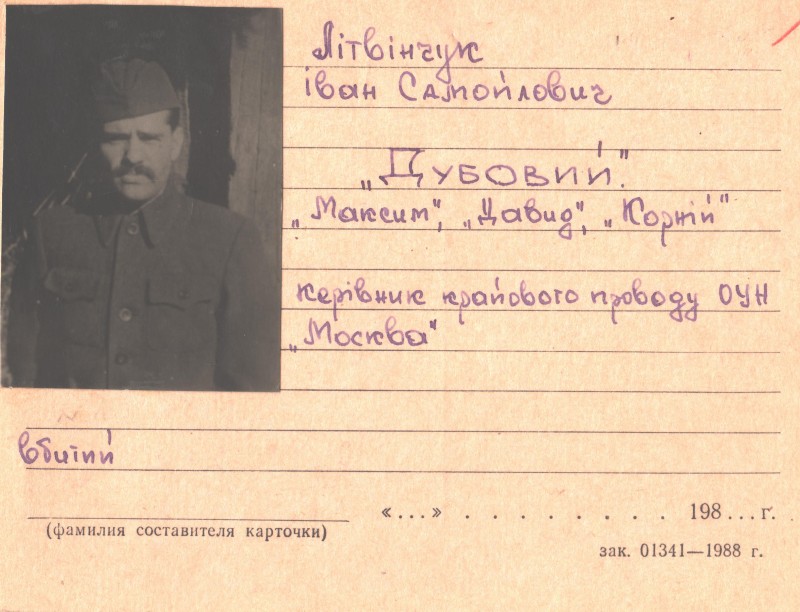 Літвінчук
Іван Самойлович
„Дубовий"
„Максим", „Давид", „Корній"
керівник крайового проводу ОУН
„Москва"
вбитий
(фамилия составителя карточки)
«...» . . . . . . . . 198...г.
зак. 01341—1988 г.